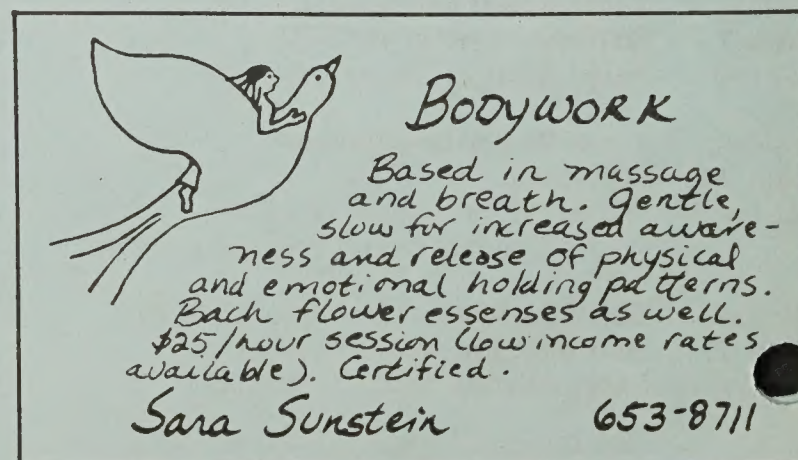 Bodywork
Based in massage
and breath. Gentle,
slow for increased aware-
ness and release of physical
and emotional holding patterns.
Bach flower essenses as well.
$25/hour session (low income rates
available). Certified.
Sara Sunstein 653-8711